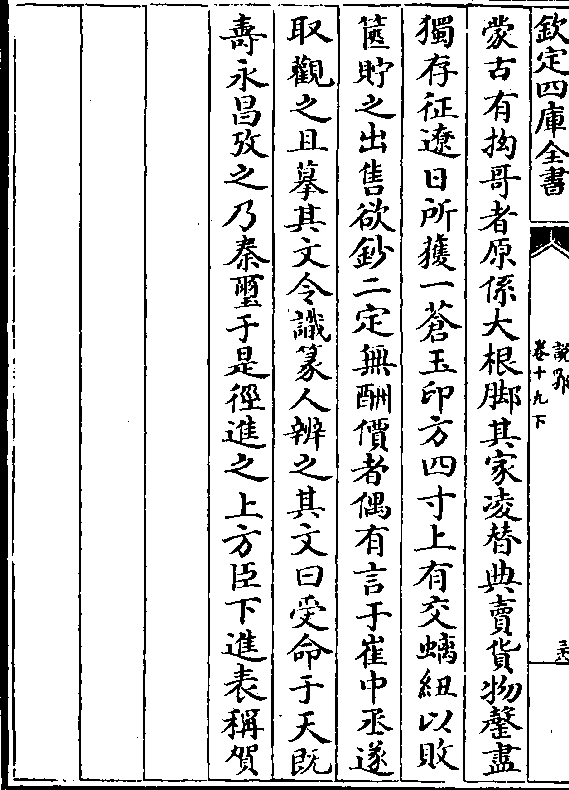 欽定四庫全書
說郛
卷十九下
蒙古有拘哥者原係大根脚其家凌替典賣貨物罄盡
獨存征遼日所獲一蒼玉印方四寸上有交螭紐以敗
篋貯之出售欲鈔二定無酬價者偶有言于崔中丞遂
取觀之且摹其文令識篆人辨之其文曰受命于天既
壽永昌攷之乃秦璽于是徑進之上方臣下進表稱賀